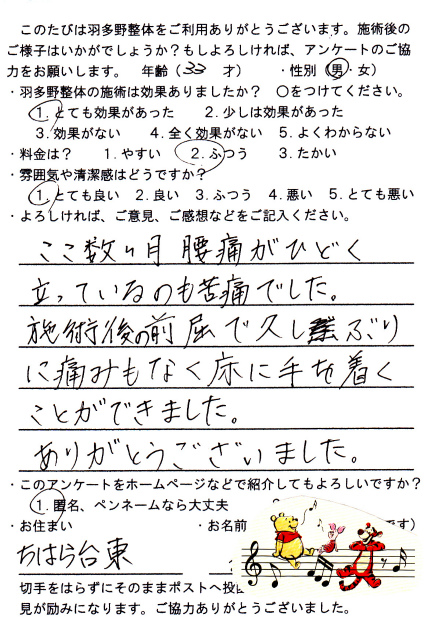 このたびは羽多野整体をご利用ありがとうございます。施術後の
ご様子はいかがでしょうか？もしよろしければ、アンケートのご協
力をお願いします。 年齢（33 才） ・性別（男・女）
・羽多野整体の施術は効果ありましたか？ 〇をつけてください。
1. とても効果があった 2. 少しは効果があった
3. 効果がない 4. 全く効果がない 5. よくわからない
・料金は？ 1. やすい 2. ふつう 3. たかい
・雰囲気や清潔感はどうですか？
1. とても良い 2. 良い 3. ふつう 4. 悪い 5. とても悪い
・よろしければ、ご意見、ご感想などをご記入ください。
ここ数ヶ月 腰痛がひどく
立っているのも苦痛でした。
施術後の前屈で久しぶり
に痛みもなく床に手を着く
ことができました。
ありがとうございました。
・このアンケートをホームページなどで紹介してもよろしいですか？
1. 匿名、ペンネームなら大丈夫
・お住まい ・お名前 です）
ちはら台東
切手をはらずにそのままポストへ投
見が励みになります。ご協力ありがとうございました。